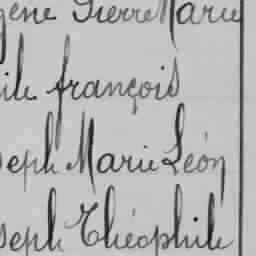 gène Pierre Marie
ile françois
seph Marie Léon
seph Théophile